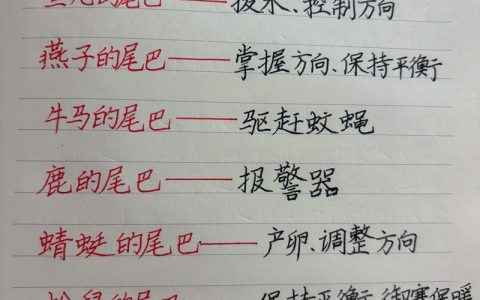 鱼儿的尾巴——拨水、控制方向
燕子的尾巴——掌握方向、保持平衡
牛马的尾巴——驱赶蚊蝇
鹿的尾巴——报警器
蜻蜓的尾巴——产卵、调整方向
松鼠的尾巴——保持平衡、御寒保暖